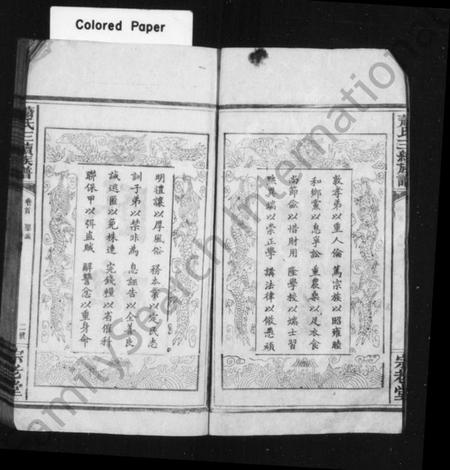 Colored Paper
蕭氏三續族譜
敦孝弟以重人倫 篤宗族以昭雍睦
和鄉黨以息爭訟 重農桑以足衣食
尚節儉以惜財用 隆學校以端士習
黜異端以崇正學 講法律以儆愚頑
宗老堂
明禮讓以厚風俗 務本業以定民志
訓子弟以禁非為 息誣告以全善良
誡逃匿以免株連 完錢糧以省催科
聯保甲以弭盜賊 解讐忿以重身命
蕭氏三續族譜
卷首 聖諭
二號
宗老堂
FamilySearch International